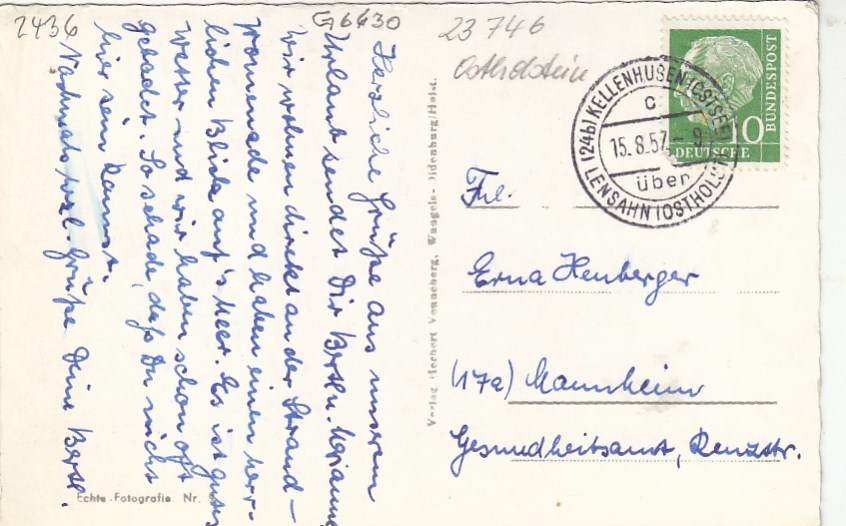 2436
G6630
23 746
Ostholstein
Herzliche Grüße aus unserem
Urlaub sendet Dir Berth u. Marianne
Wir wohnen direkt an der Strand-
promenade und haben einen herr-
lichen Blick auf's Meer. Es ist gutes
Wetter und wir haben schon oft
gebadet. So schade, daß Du nicht
hier sein kannst.
Nochmals herzl. Grüße Deine Berth.
Echte Fotografie Nr.
Verlag Herbert Venneberg, Wangels-Oldenburg/Holst.
(24b) KELLENHUSEN (OSTSEE)
c
15.8.57.- 9
über
LENSAHN (OSTHOLST)
10
DEUTSCHE
BUNDESPOST
Frl.
Erna Henberger
(17a) Mannheim
Gesundheitsamt, Renzstr.